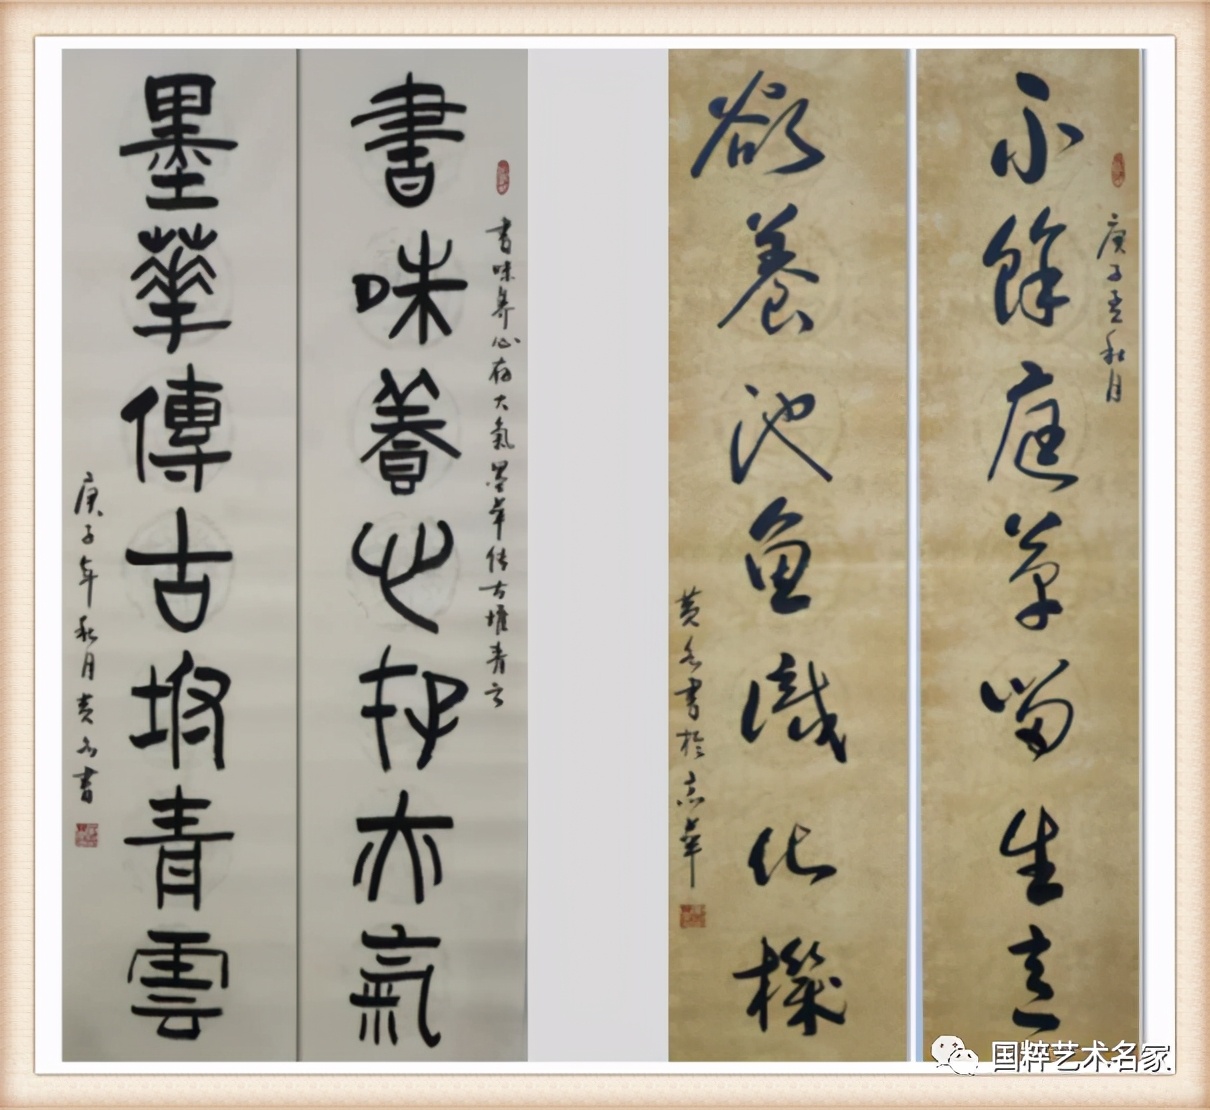 庚子孟秋月
不餘庭草留生意
欲養池魚識化機
黄名書於京華
書味養心存大氣墨華传古堆青云
書味養心存大氣
墨華傳古堆青雲
庚子年秋月黄名書
国粹艺术名家